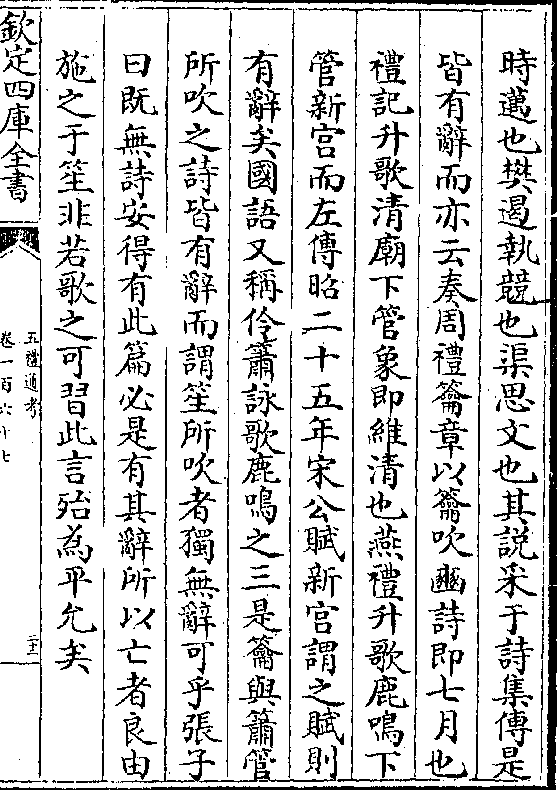 時邁也樊遏執競也渠思文也其說采于詩集傳是
皆有辭而亦云奏周禮籥章以籥吹豳詩即七月也
禮記升歌清廟下管象即維清也燕禮升歌鹿鳴下
管新宮而左傳昭二十五年宋公賦新宮謂之賦則
有辭矣國語又稱伶簫詠歌鹿鳴之三是籥與簫管
所吹之詩皆有辭而謂笙所吹者獨無辭可乎張子
曰既無詩安得有此篇必是有其辭所以亡者良由
施之于笙非若歌之可習此言殆為平允矣
欽定四庫全書
五禮通考
卷一百六十七